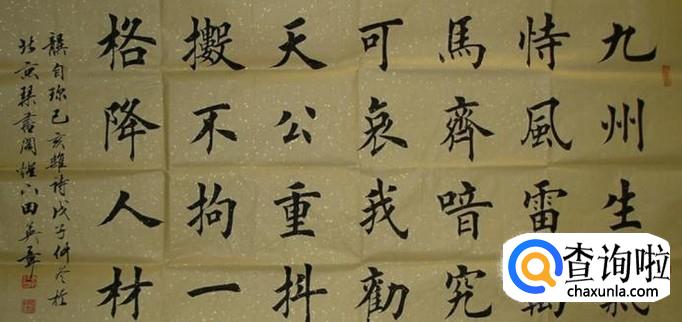 九州生氣
恃風雷萬
馬齊喑究
可哀我勸
天公重抖
擻不拘一
格降人材
龔自珍己亥雜詩戊子仲冬於
北京琴書閣 田英章
查询啦
chaxunla.com